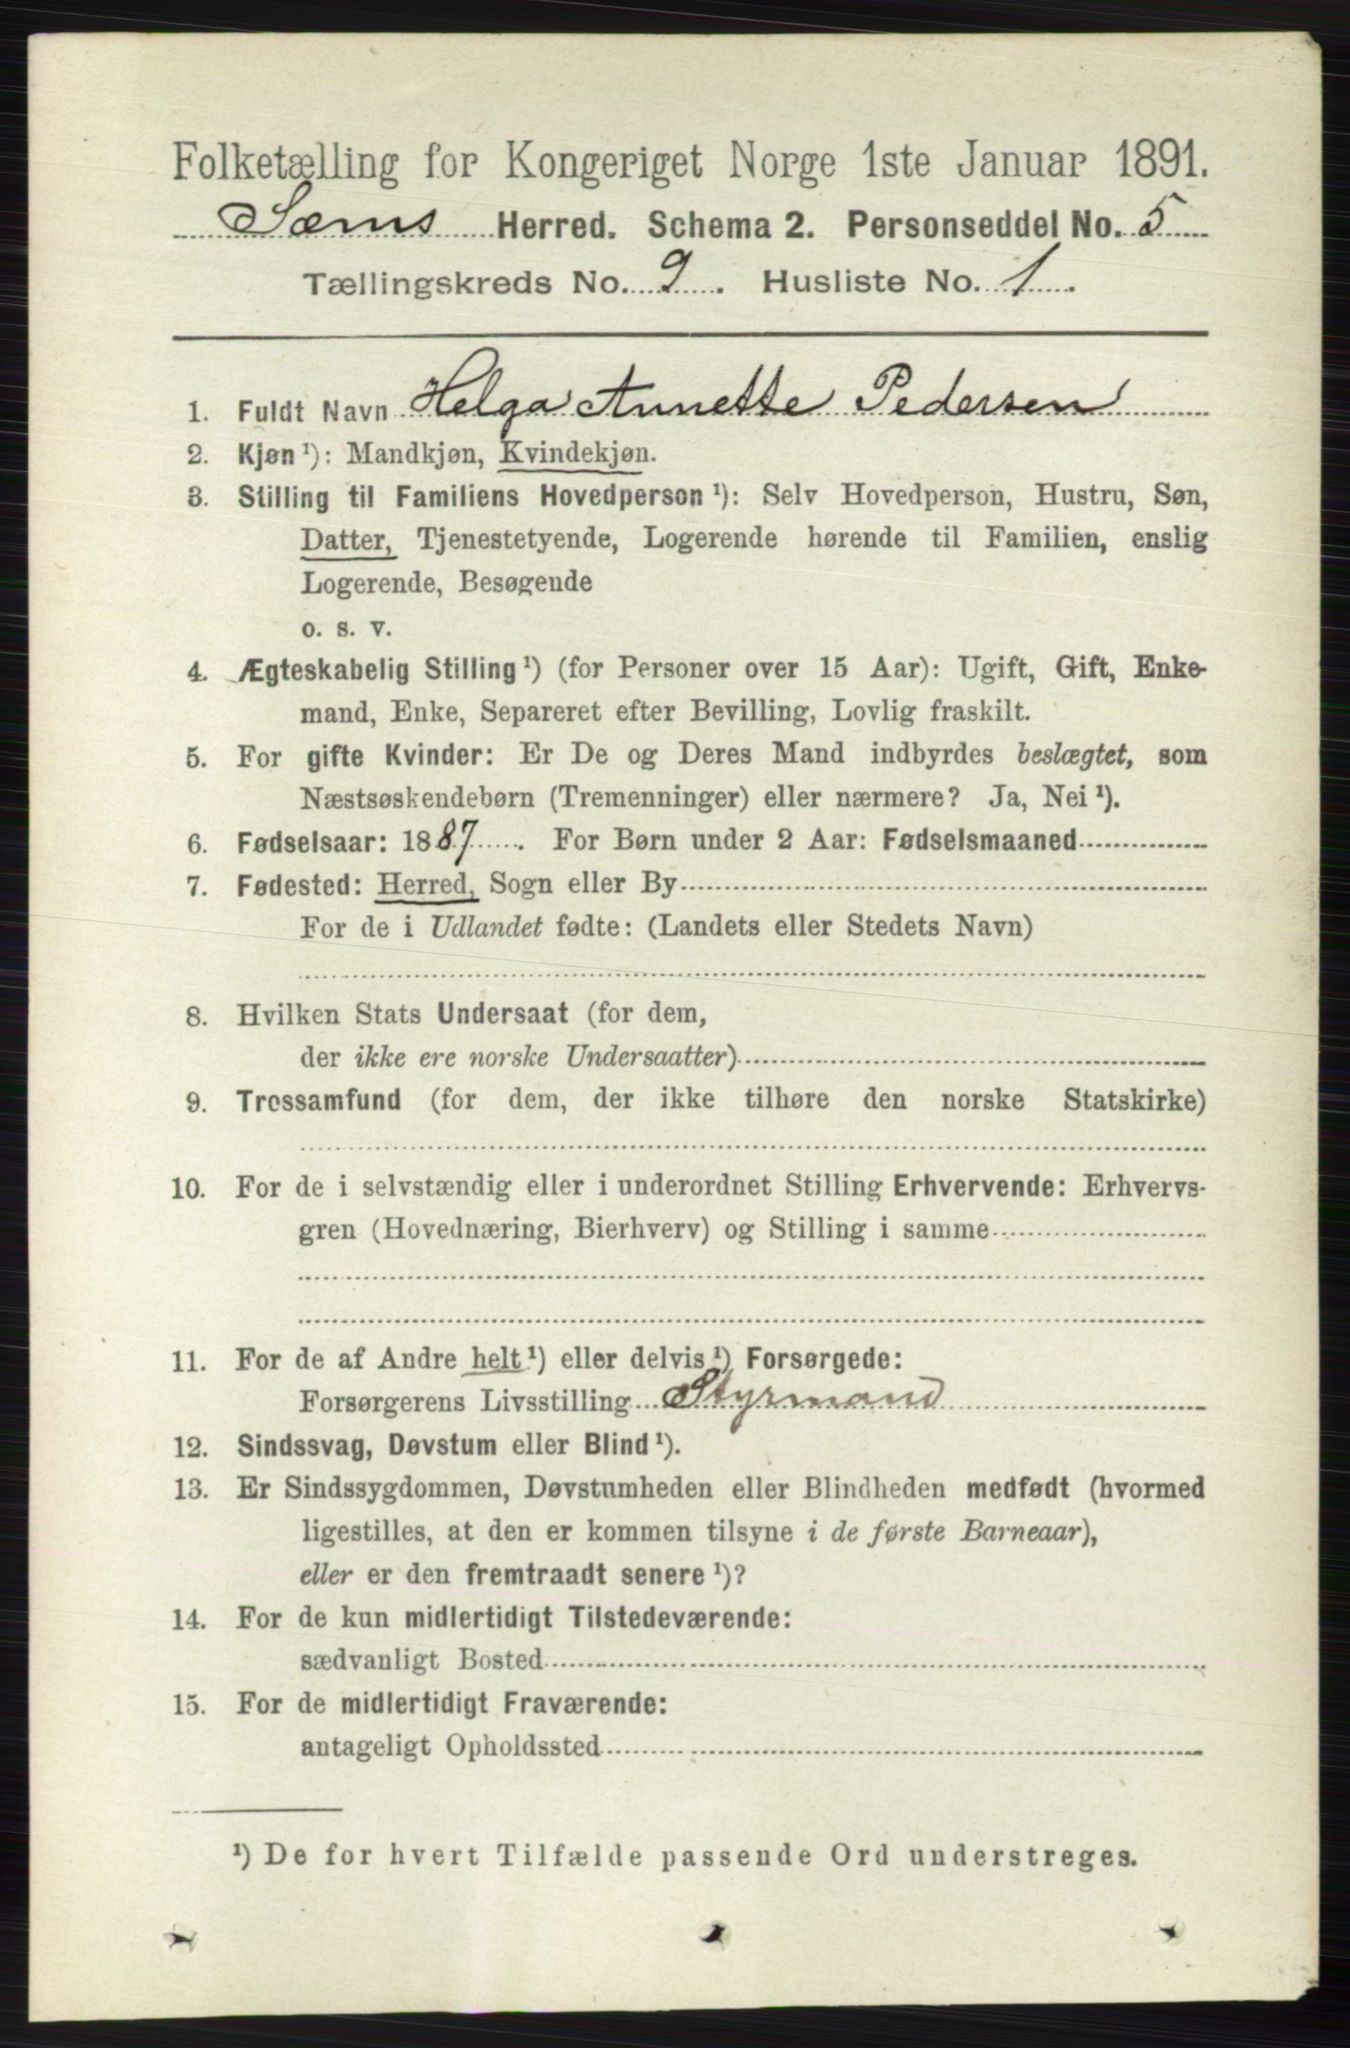 Folketælling for Kongeriget Norge 1ste Januar 1891.
Sæms Herred. Schema 2. Personseddel No. 5
Tællingskreds No. 9. Husliste No. 1.
1. Fuldt Navn Helga Annette Pedersen
2. Kjøn ¹): Mandkjøn, Kvindekjøn.
3. Stilling til Familiens Hovedperson ¹): Selv Hovedperson, Hustru, Søn,
Datter, Tjenestetyende, Logerende hørende til Familien, enslig
Logerende, Besøgende
o. s. v.
4. Ægteskabelig Stilling ¹) (for Personer over 15 Aar): Ugift, Gift, Enke-
mand, Enke, Separeret efter Bevilling, Lovlig fraskilt.
5. For gifte Kvinder: Er De og Deres Mand indbyrdes beslægtet, som
Næstsøskendebørn (Tremenninger) eller nærmere? Ja, Nei ¹).
6. Fødselsaar: 1887. For Børn under 2 Aar: Fødselsmaaned
7. Fødested: Herred, Sogn eller By
For de i Udlandet fødte: (Landets eller Stedets Navn)
8. Hvilken Stats Undersaat (for dem,
der ikke ere norske Undersaatter)
9. Trossamfund (for dem, der ikke tilhøre den norske Statskirke)
10. For de i selvstændig eller i underordnet Stilling Erhvervende: Erhvervs-
gren (Hovednæring, Bierhverv) og Stilling i samme
11. For de af Andre helt ¹) eller delvis ¹) Forsørgede:
Forsørgerens Livsstilling Styrmand
12. Sindssvag, Døvstum eller Blind ¹).
13. Er Sindssygdommen, Døvstumheden eller Blindheden medfødt (hvormed
ligestilles, at den er kommen tilsyne i de første Barneaar),
eller er den fremtraadt senere ¹)?
14. For de kun midlertidigt Tilstedeværende:
sædvanligt Bosted
15. For de midlertidigt Fraværende:
antageligt Opholdssted
¹) De for hvert Tilfælde passende Ord understreges.